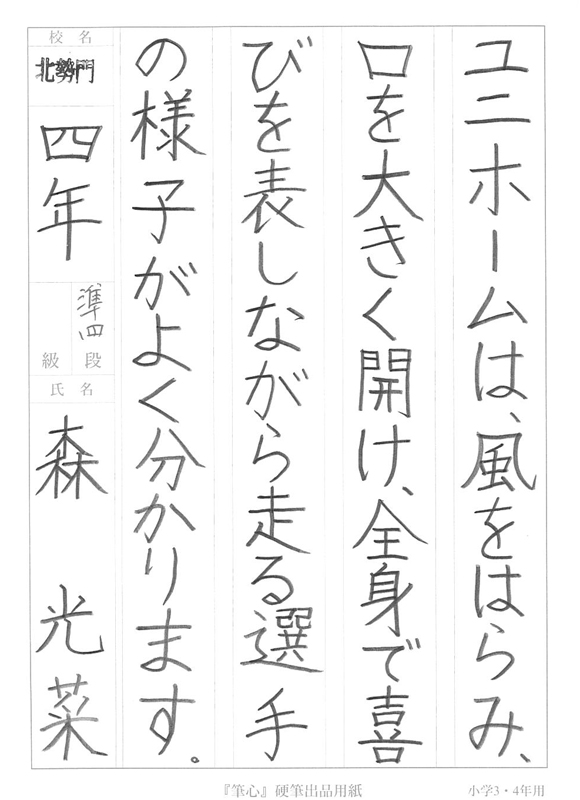 ユニホームは、風をはらみ、
口を大きく開け、全身で喜
びを表しながら走る選手
の様子がよく分かります。
校名
北勢門
四年
準四
段
級
氏名
森 光菜
『筆心』硬筆出品用紙
小学3・4年用